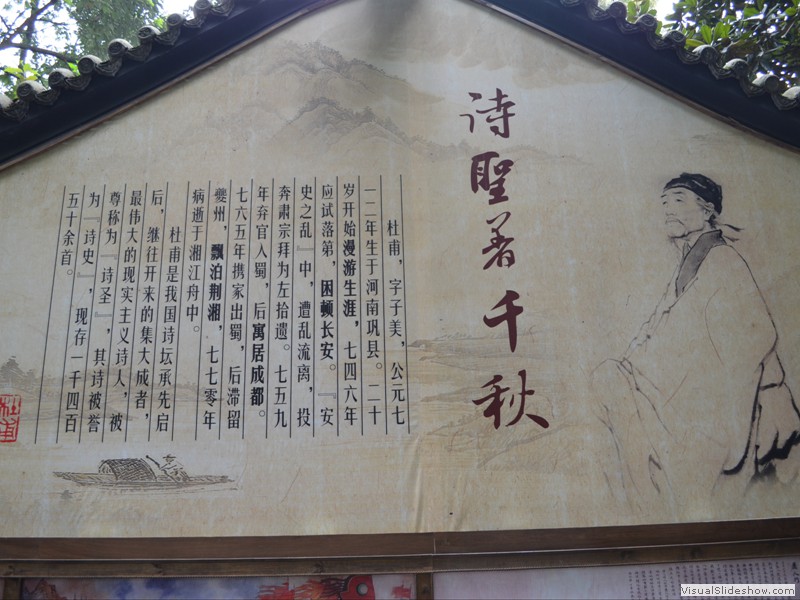 诗聖著千秋
杜甫，字子美，公元七
一二年生于河南巩县。二十
岁开始漫游生涯，七四六年
应试落第，困顿长安。『安
史之乱』中，遭乱流离，投
奔肃宗拜为左拾遗。七五九
年弃官入蜀，后寓居成都。
七六五年携家出蜀，后滞留
夔州，飘泊荆湘，七七零年
病逝于湘江舟中。
杜甫是我国诗坛承先启
后，继往开来的集大成者，
最伟大的现实主义诗人，被
尊称为『诗圣』，其诗被誉
为『诗史』，现存一千四百
五十余首。
杜甫
VisualSlideshow.com